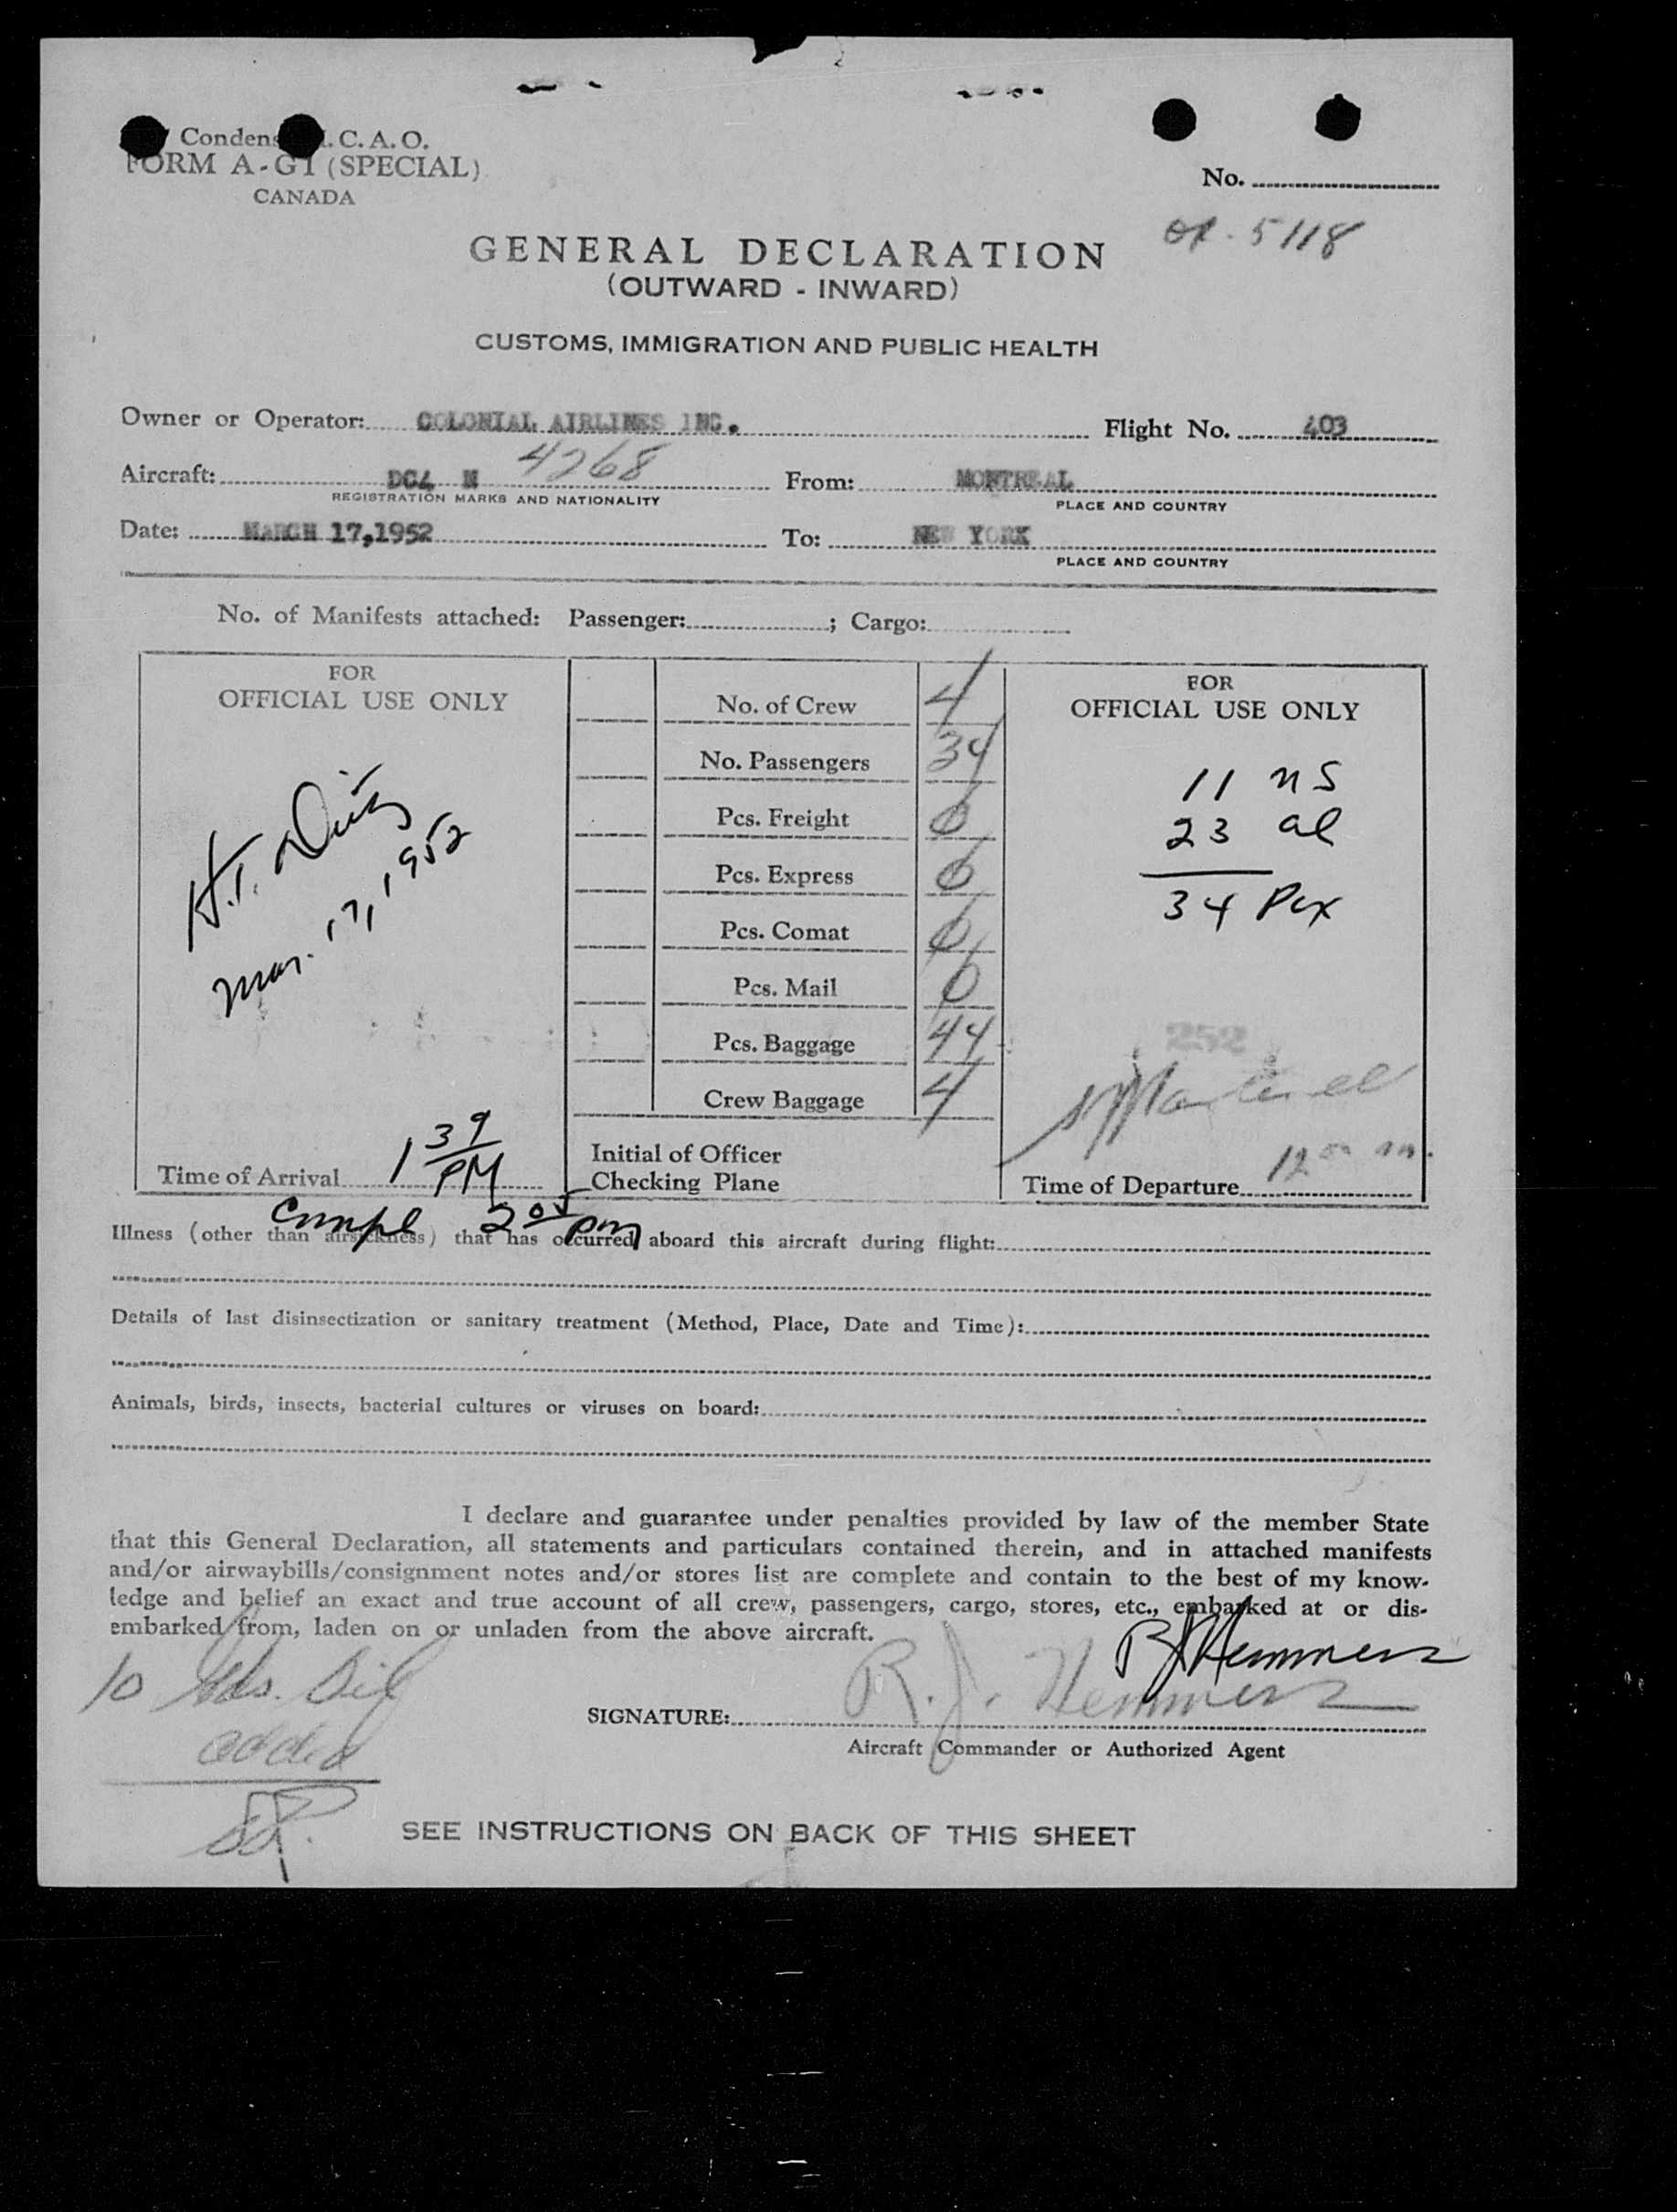 Condens I.C.A.O.
FORM A-G1 (SPECIAL)
CANADA
No.
5118
GENERAL DECLARATION
(OUTWARD - INWARD)
CUSTOMS, IMMIGRATION AND PUBLIC HEALTH
Owner or Operator: COLONIAL AIRLINES INC. Flight No. 403
Aircraft: DC4 N 4268 From: MONTREAL
REGISTRATION MARKS AND NATIONALITY PLACE AND COUNTRY
Date: MARCH 17,1952 To: NEW YORK
PLACE AND COUNTRY
No. of Manifests attached: Passenger: ; Cargo:
FOR
OFFICIAL USE ONLY
H.T.
Mar. 17, 1952
Time of Arrival 1 39 PM
No. of Crew 4
No. Passengers 34
Pcs. Freight 0
Pcs. Express 0
Pcs. Comat 0
Pcs. Mail 0
Pcs. Baggage 44
Crew Baggage 4
Initial of Officer
Checking Plane
FOR
OFFICIAL USE ONLY
11 NS
23 al
34 Pax
252
Time of Departure 12 00
Compl 2 05 pm
Illness (other than airsickness) that has occurred aboard this aircraft during flight:
Details of last disinsectization or sanitary treatment (Method, Place, Date and Time):
Animals, birds, insects, bacterial cultures or viruses on board:
I declare and guarantee under penalties provided by law of the member State
that this General Declaration, all statements and particulars contained therein, and in attached manifests
and/or airwaybills/consignment notes and/or stores list are complete and contain to the best of my know-
ledge and belief an exact and true account of all crew, passengers, cargo, stores, etc., embarked at or dis-
embarked from, laden on or unladen from the above aircraft.
RJ Hemmers
10 Gds. Oil
added
SIGNATURE: R. J. Hemmers
Aircraft Commander or Authorized Agent
SEE INSTRUCTIONS ON BACK OF THIS SHEET